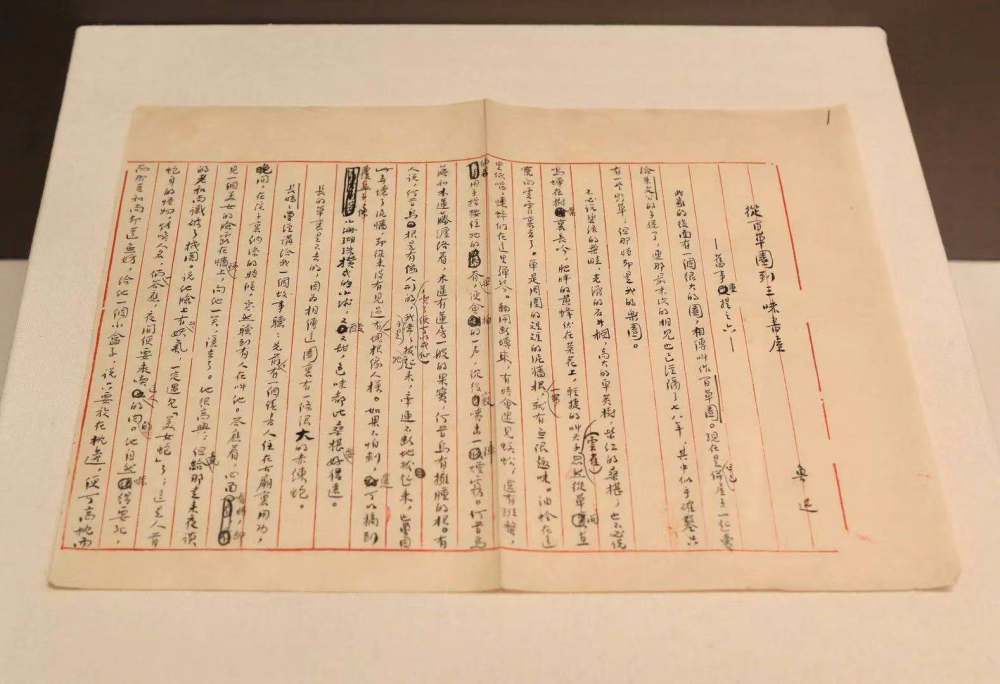 從百草園到三味書屋
——舊事重提之六——
魯迅
我家的後面有一個很大的園，相傳叫作百草園。現在是早已併屋子一起賣
給朱文公的子孫了，連那最末次的相見也已經隔了七八年，其中似乎確鑿只
有一些野草；但那時卻是我的樂園。
不必說碧綠的菜畦，光滑的石井欄，高大的皂莢樹，紫紅的桑椹；也不必說
鳴蟬在樹葉裏長吟，肥胖的黃蜂伏在菜花上，輕捷的叫天子（雲雀）忽然從草間直
竄向雲霄裏去了。單是周圍的短短的泥牆根一帶，就有無限趣味。油蛉在這
里低唱，蟋蟀們在這里彈琴。翻開斷磚來，有時會遇見蜈蚣；還有斑蝥，
倘若用手指按住它的脊梁，便會拍的一聲，從後竅噴出一陣煙霧。何首烏
藤和木蓮藤纏絡着，木蓮有蓮房一般的果實，何首烏有擁腫的根。有
人說，何首烏根是有像人形的，吃了便可以成仙，我於是常常拔它起來，牽連不斷地拔起來，也曾因
此弄壞了泥牆，卻從來沒有見過有一塊根像人樣。如果不怕刺，還可以摘到
覆盆子，像小珊瑚珠攢成的小球，又酸又甜，色味都比桑椹好得遠。
長的草裏是不去的，因為相傳這園裏有一條很大的赤練蛇。
長媽媽曾經講給我一個故事聽：先前，有一個讀書人住在古廟裏用功，
晚間，在院子裏納涼的時候，突然聽到有人在叫他。答應着，四面看時，卻
見一個美女的臉露在牆頭上，向他一笑，隱去了。他很高興；但竟給那走來夜談
的老和尚識破了機關。說他臉上有些妖氣，一定遇見「美女蛇」了；這是人首
蛇身的怪物，能喚人名，倘一答應，夜間便要來吃這人的肉的。他自然嚇得要死，
而那老和尚卻道無妨，給他一個小盒子，說只要放在枕邊，便可高枕而